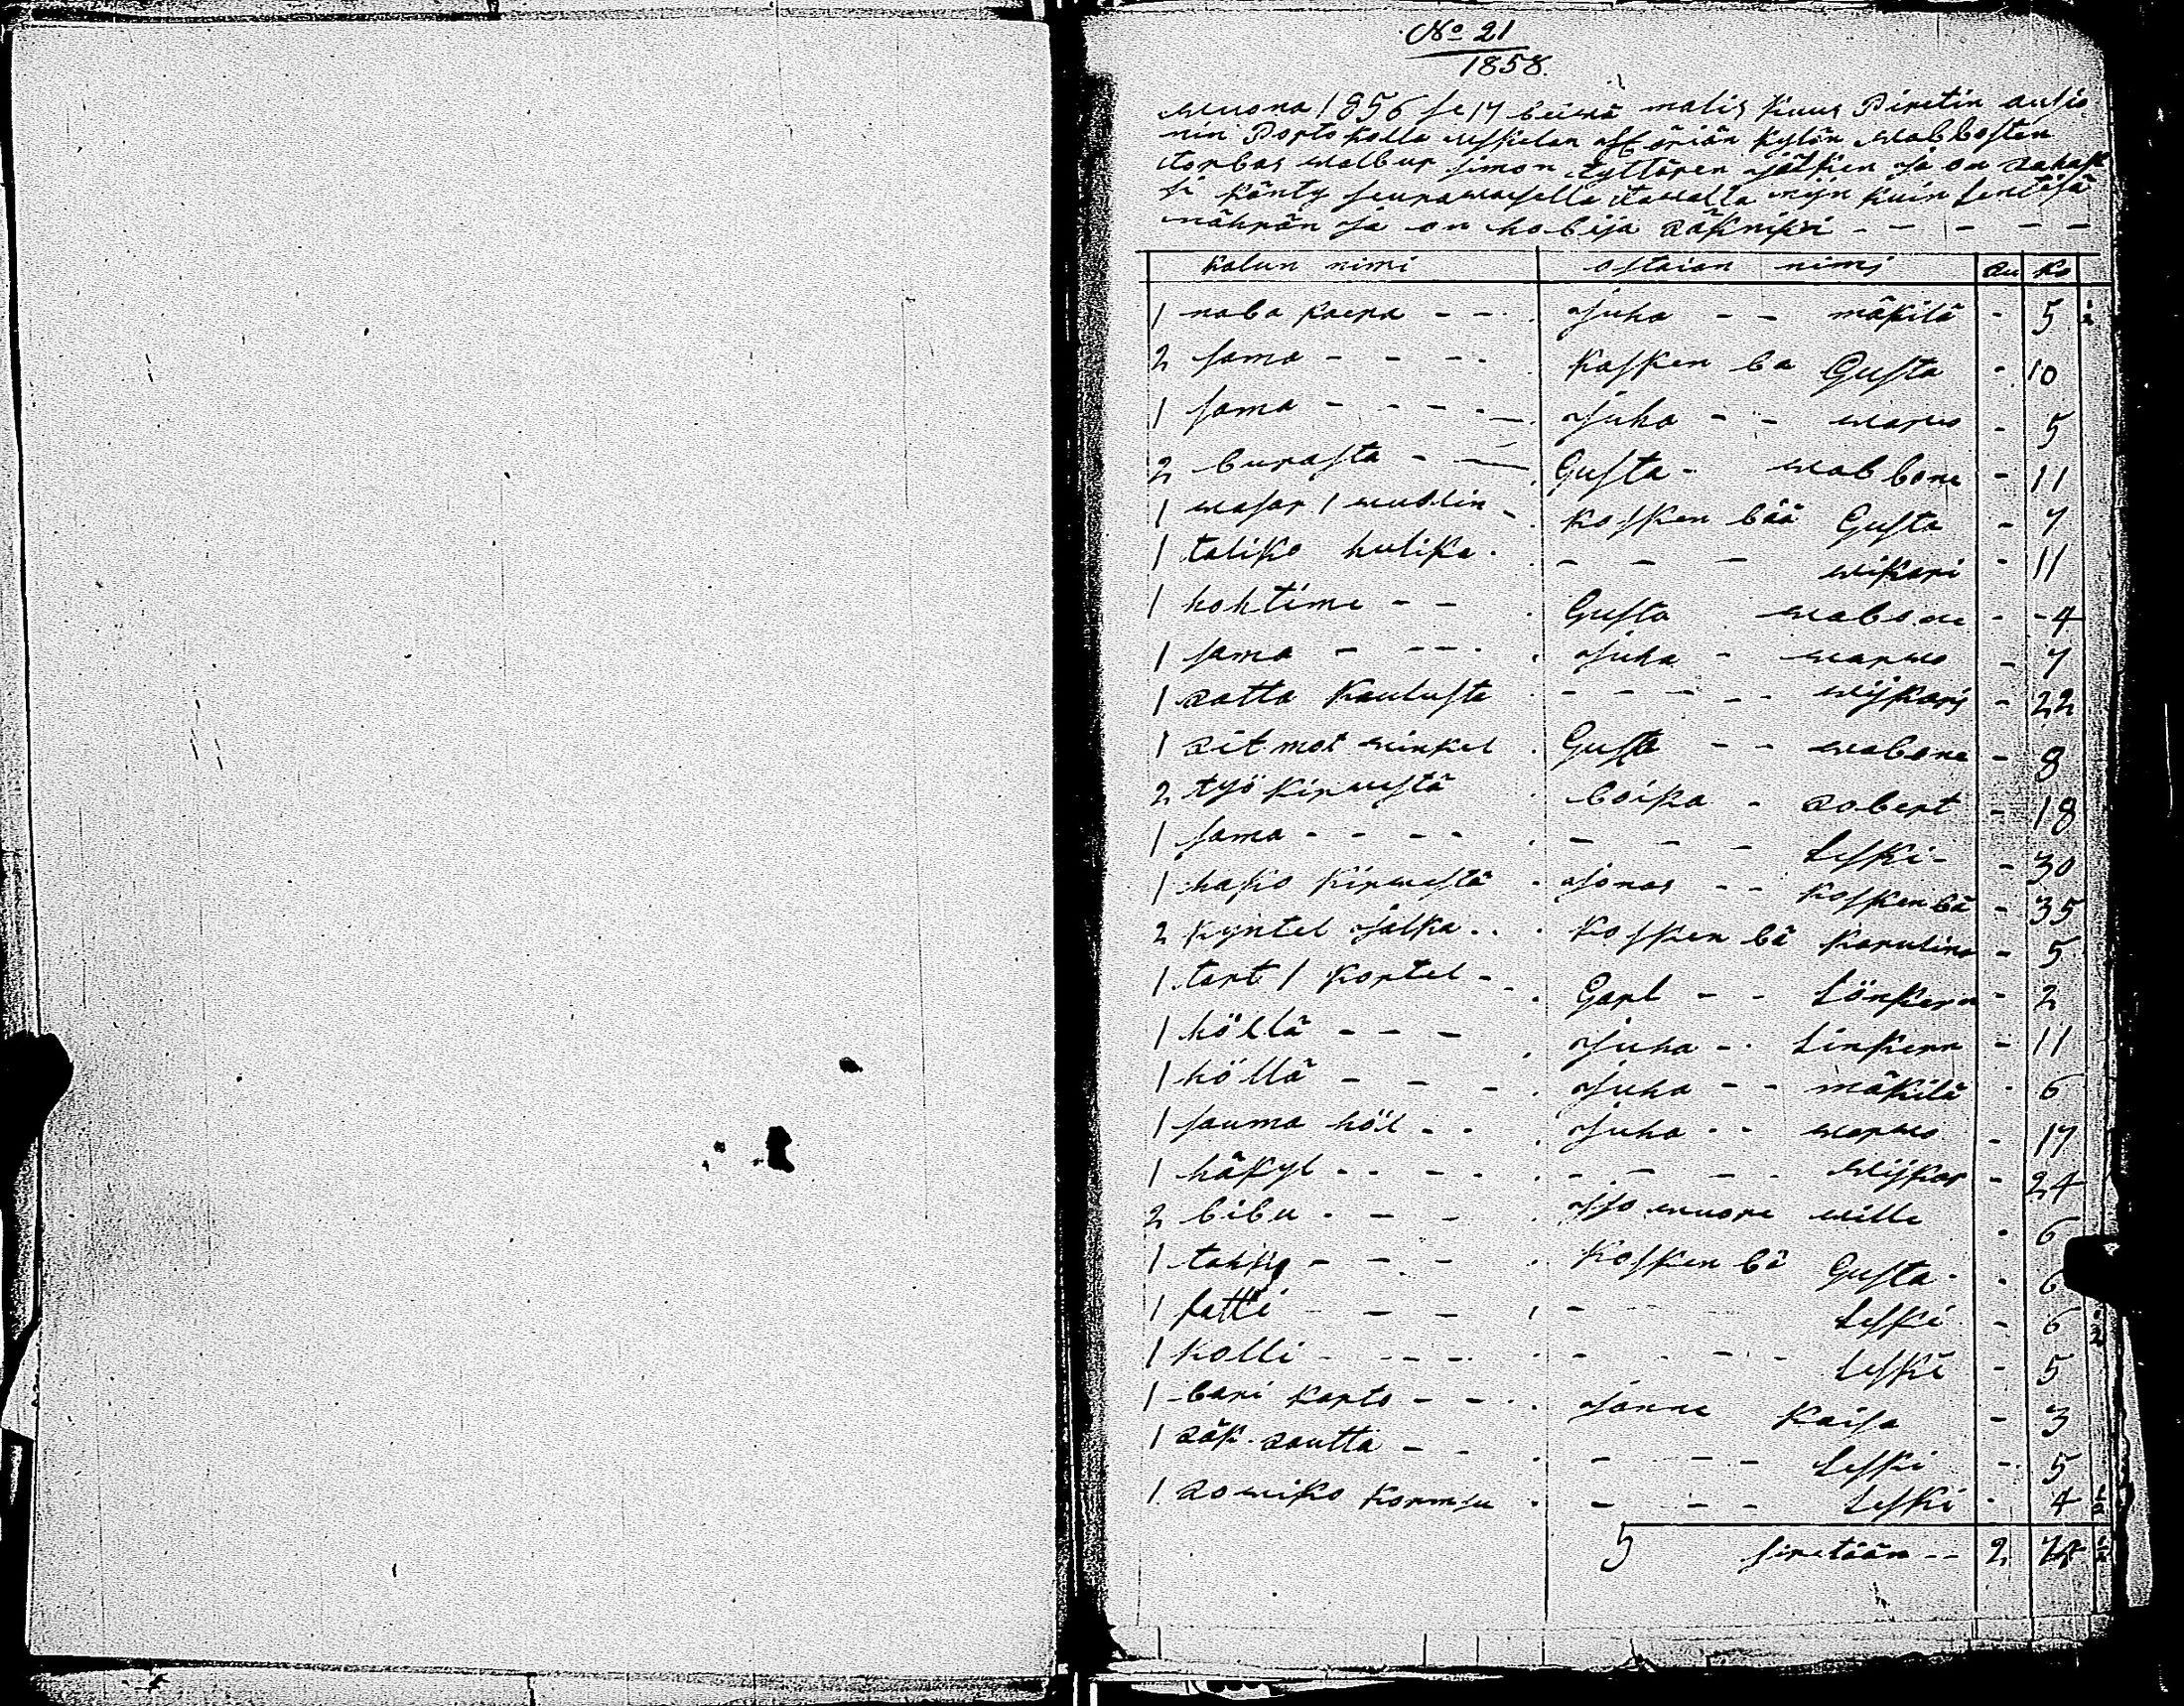 No 21
1858.
wuona 1856 se 17 beiwä malis kuus Piretin auksio
nin Porto kolla uskelan Ist öriän kylän wabbosten
torbas walbur simon tyttären jälkien ja on rahak
si känty seurawaisella tawalla nijn kuin sentäsä
nähärän ja on hobija räknikri - - - - -
kalun nimi ostaian nimi Ru Ko
1 naba kaera - - juha - - mäkilä - 5 1/2
2 sama - - - - kosken ba Gusta - 10
1 sama - - - - juha - - warwo - 5
2 burasta - - Gusta - wabbone - 11
1 wasar 1 wuolin - kosken bää Gusta - 7
1 taliko hulika - - - - wikari - 11
1 hohtime - - Gusta wabone - - 4
1 sama - - - - juha - warwo - 7
1 ratta kaulusta - - - - - wijkari - 22
1 rit mot winkel Gusta - - wabone - 8
2 työ kirwestä boika - Robert - 18
1 sama - - - - - - - Leski - - 30
1 hako kirwestä - jonas - - kosken bä - 35
2 kyntel jalka . . kosken bä karulina - 5
1 tort 1 kortel - - Garl - - Lönkern - 2
1 höllä - - - juha - - Linkern - 11
1 höllä - - - juha - - mäkilä - 6
1 sauma höl - - juha - - warwo - 17
1 häkyl - - - - - - - - wijkar - 24
2 bibu - - - Iso wuore wille - 6
1 tahko - - - kosken bä Gusta - - 6
1 satti - - - - - - Leski - 6 1/2
1 kolli - - - - - - - - Leski - 5
1 bari karto - - - janne kaisa - 3
1 räk rautta - - - - - - Leski - 5
1 rowiko kormsu - - - - Leski - 4 1/2
5 siretään - - 2 74 1/2